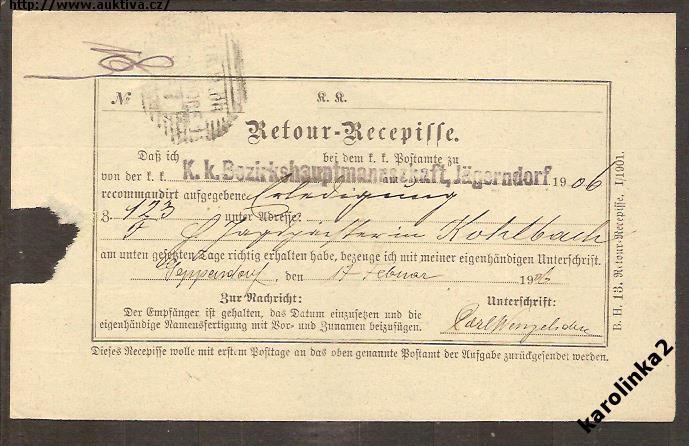 http://www.auktiva.cz/
№ K. K.
Retour-Recepisse.
Daß ich bei dem k. k. Postamte zu
von der k. k. K. k. Bezirkshauptmannschaft, Jägerndorf 1906
recommandirt aufgegebene Erledigung
Z. 123 unter Adresse:
in Kohlbach
am unten gesetzten Tage richtig erhalten habe, bezeuge ich mit meiner eigenhändigen Unterschrift.
den 17 Februar 190
Zur Nachricht: Unterschrift:
Der Empfänger ist gehalten, das Datum einzusetzen und die
eigenhändige Namensfertigung mit Vor- und Zunamen beizufügen. Carl
Dieses Recepisse wolle mit erstem Posttage an das oben genannte Postamt der Aufgabe zurückgesendet werden.
B. H. 13. Retour-Recepisse. I/1901.
karolinka2